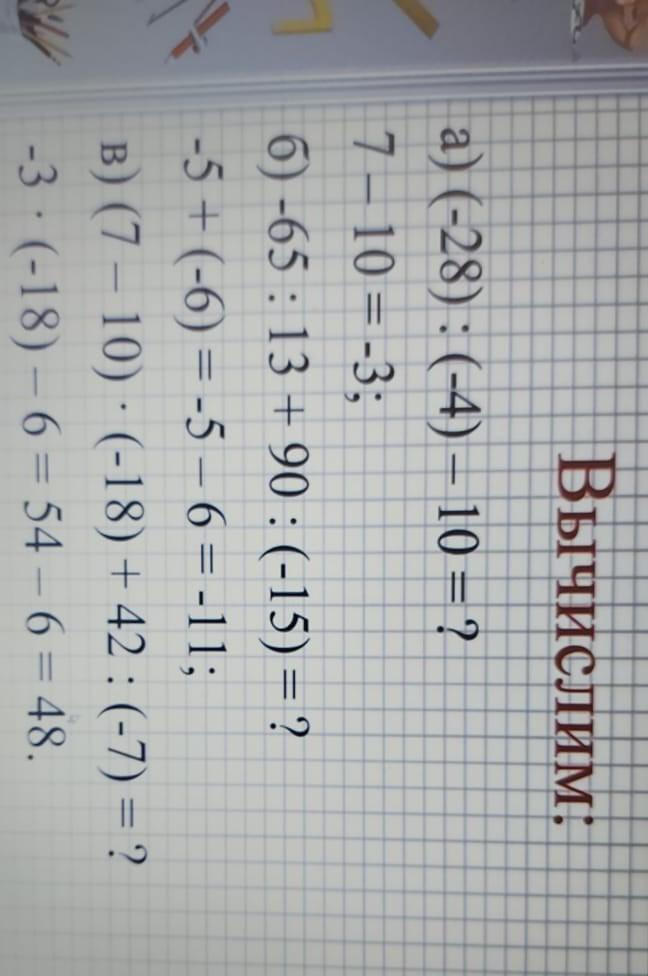 Вычислим:
а) (-28) : (-4) – 10 = ?
7 – 10 = -3;
б) -65 : 13 + 90 : (-15) = ?
-5 + (-6) = -5 – 6 = -11;
в) (7 – 10) · (-18) + 42 : (-7) = ?
-3 · (-18) – 6 = 54 – 6 = 48.